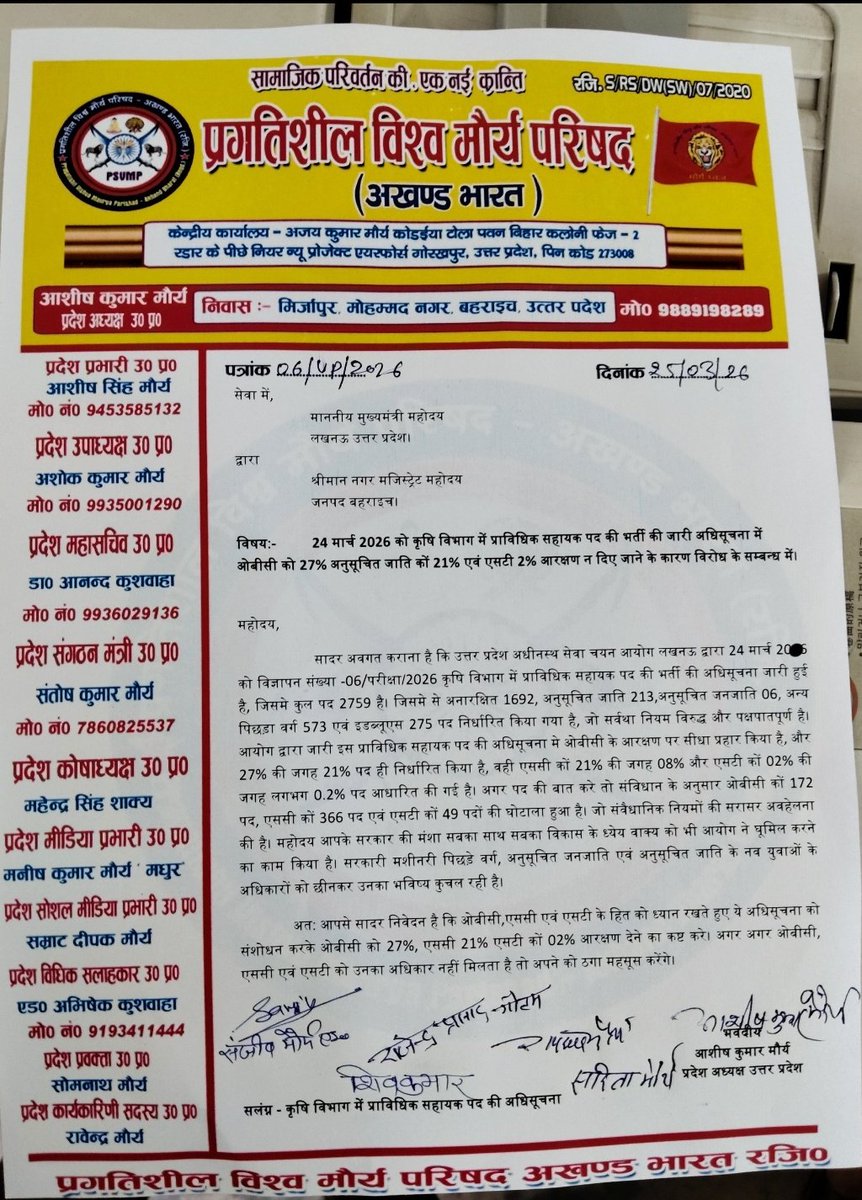 सामाजिक परिवर्तन की . एक नई क्रान्ति
रजि. S/RS/DW(SW)/07/2020
प्रगतिशील विश्व मौर्य परिषद
(अखण्ड भारत )
PSVMP
केन्द्रीय कार्यालय – अजय कुमार मौर्य कोडईया टोला पवन बिहार कलोनी फेज - 2
रडार के पीछे नियर न्यू प्रोजेक्ट एयरफोर्स गोरखपुर, उत्तर प्रदेश, पिन कोड 273008
आशीष कुमार मौर्य
प्रदेश अध्यक्ष उ0 प्र0
निवास :- मिर्जापुर, मोहम्मद नगर, बहराइच, उत्तर पदेश
मो0 9889198289
प्रदेश प्रभारी उ0 प्र0
आशीष सिंह मौर्य
मो0 नं0 9453585132
प्रदेश उपाध्यक्ष उ0 प्र0
अशोक कुमार मौर्य
मो0 नं0 9935001290
प्रदेश महासचिव उ0 प्र0
डा0 आनन्द कुशवाहा
मो0 नं0 9936029136
प्रदेश संगठन मंत्री उ0 प्र0
संतोष कुमार मौर्य
मो0 नं0 7860825537
प्रदेश कोषाध्यक्ष उ0 प्र0
महेन्द्र सिंह शाक्य
प्रदेश मीडिया प्रभारी उ0 प्र0
मनीष कुमार मौर्य 'मधुर'
प्रदेश सोशल मीडिया प्रभारी उ0 प्र0
सम्राट दीपक मौर्य
प्रदेश विधिक सलाहकार उ0 प्र0
एड0 अभिषेक कुशवाहा
मो0 नं0 9193411444
प्रदेश प्रवक्ता उ0 प्र0
सोमनाथ मौर्य
प्रदेश कार्यकारिणी सदस्य उ0 प्र0
रावेन्द्र मौर्य
पत्रांक 06/UP/2026
दिनांक 25/03/26
सेवा में,
माननीय मुख्यमंत्री महोदय
लखनऊ उत्तर प्रदेश।
द्वारा
श्रीमान नगर मजिस्ट्रेट महोदय
जनपद बहराइच।
विषय:- 24 मार्च 2026 को कृषि विभाग में प्राविधिक सहायक पद की भर्ती की जारी अधिसूचना में
ओबीसी को 27% अनुसूचित जाति कों 21% एवं एसटी 2% आरक्षण न दिए जाने के कारण विरोध के सम्बन्ध में।
महोदय,
सादर अवगत कराना है कि उत्तर प्रदेश अधीनस्थ सेवा चयन आयोग लखनऊ द्वारा 24 मार्च 2026
को विज्ञापन संख्या -06/परीक्षा/2026 कृषि विभाग में प्राविधिक सहायक पद की भर्ती की अधिसूचना जारी हुई
है, जिसमे कुल पद 2759 है। जिसमे से अनारक्षित 1692, अनुसूचित जाति 213,अनुसूचित जनजाति 06, अन्य
पिछड़ा वर्ग 573 एवं इडब्लूएस 275 पद निर्धारित किया गया है, जो सर्वथा नियम विरुद्ध और पक्षपातपूर्ण है।
आयोग द्वारा जारी इस प्राविधिक सहायक पद की अधिसूचना मे ओबीसी के आरक्षण पर सीधा प्रहार किया है, और
27% की जगह 21% पद ही निर्धारित किया है, वही एससी कों 21% की जगह 08% और एसटी कों 02% की
जगह लगभग 0.2% पद आधारित की गई है। अगर पद की बात करे तो संविधान के अनुसार ओबीसी कों 172
पद, एससी कों 366 पद एवं एसटी कों 49 पदों की घोटाला हुआ है। जो संवैधानिक नियमों की सरासर अवहेलना
की है। महोदय आपके सरकार की मंशा सबका साथ सबका विकास के ध्येय वाक्य को भी आयोग ने घूमिल करने
का काम किया है। सरकारी मशीनरी पिछड़े वर्ग, अनुसूचित जनजाति एवं अनुसूचित जाति के नव युवाओं के
अधिकारों को छीनकर उनका भविष्य कुचल रही है।
अत: आपसे सादर निवेदन है कि ओबीसी,एससी एवं एसटी के हित को ध्यान रखते हुए ये अधिसूचना को
संशोधन करके ओबीसी को 27%, एससी 21% एसटी कों 02% आरक्षण देने का कष्ट करे। अगर अगर ओबीसी,
एससी एवं एसटी को उनका अधिकार नहीं मिलता है तो अपने को ठगा महसूस करेंगे।
संजीव मौर्य एड०
राजेन्द्र प्रसाद गौतम
शिवकुमार
सरिता मौर्य
भवदीय
आशीष कुमार मौर्य
प्रदेश अध्यक्ष उत्तर प्रदेश
सलंग्न - कृषि विभाग में प्राविधिक सहायक पद की अधिसूचना
प्रगतिशील विश्व मौर्य परिषद अखण्ड भारत रजि0